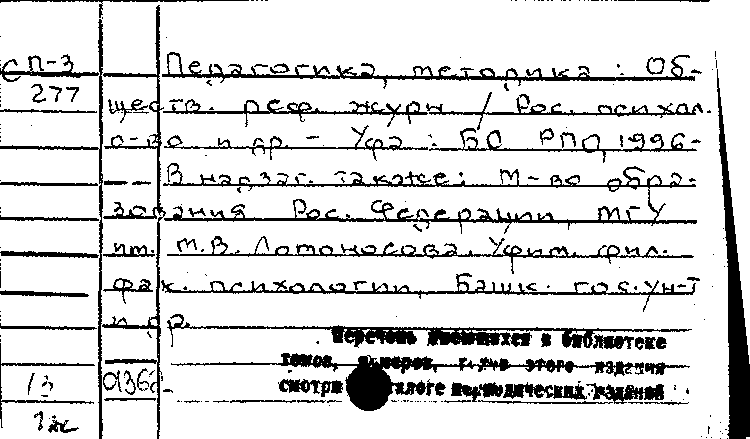 П-3 Педагогика, методика : Об-
277 ществ. реф. журн / Рос. психол.
о-во и др. - Уфа : БО РПО, 1996-
В надзаг. также: М-во обра-
зования Рос. Федерации, МГУ
им. М.В. Ломоносова, Уфим. фил.
фак. психологии, Башк. гос. ун-т
и др.
Перечень имеющихся в библиотеке
томов, номеров, годов этого издания
смотри каталоге периодических изданий
13